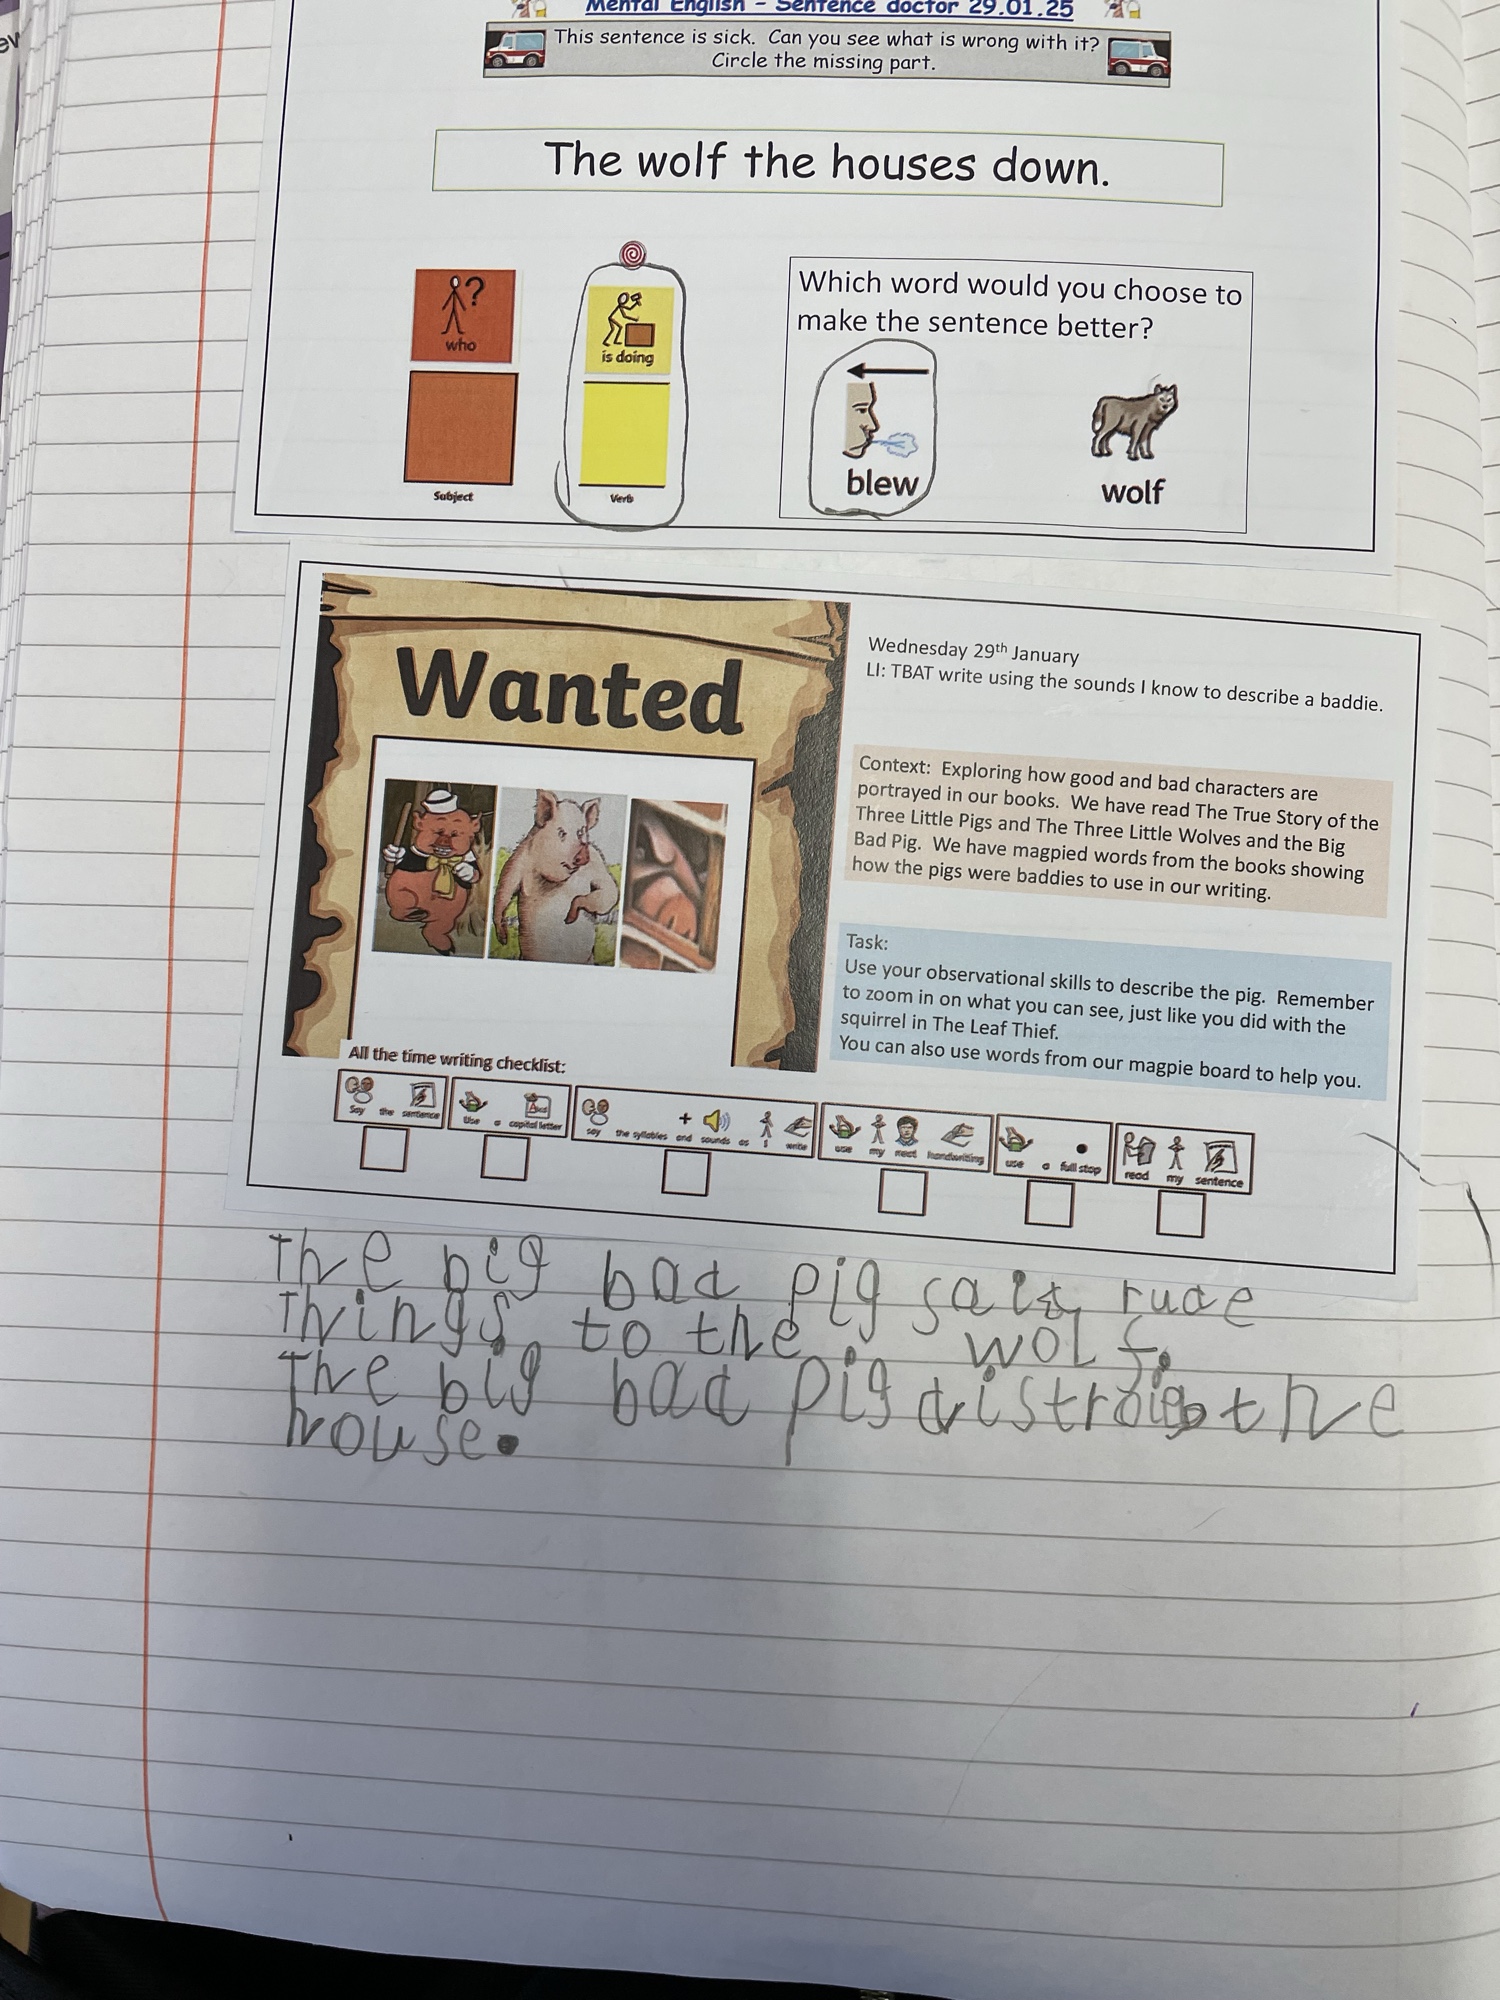 Mental English - Sentence doctor 29.01.25
This sentence is sick. Can you see what is wrong with it?
Circle the missing part.
The wolf the houses down.
?
who
Subject
is doing
Verb
Which word would you choose to
make the sentence better?
blew
wolf
Wanted
Wednesday 29th January
LI: TBAT write using the sounds I know to describe a baddie.
Context: Exploring how good and bad characters are
portrayed in our books. We have read The True Story of the
Three Little Pigs and The Three Little Wolves and the Big
Bad Pig. We have magpied words from the books showing
how the pigs were baddies to use in our writing.
Task:
Use your observational skills to describe the pig. Remember
to zoom in on what you can see, just like you did with the
squirrel in The Leaf Thief.
You can also use words from our magpie board to help you.
All the time writing checklist:
Say the sentence
Use a capital letter
say the syllables and + sounds as I write
use my neat handwriting
use a full stop
read my sentence
The big bad pig said rude
things to the wolf.
The big bad pig the
house.